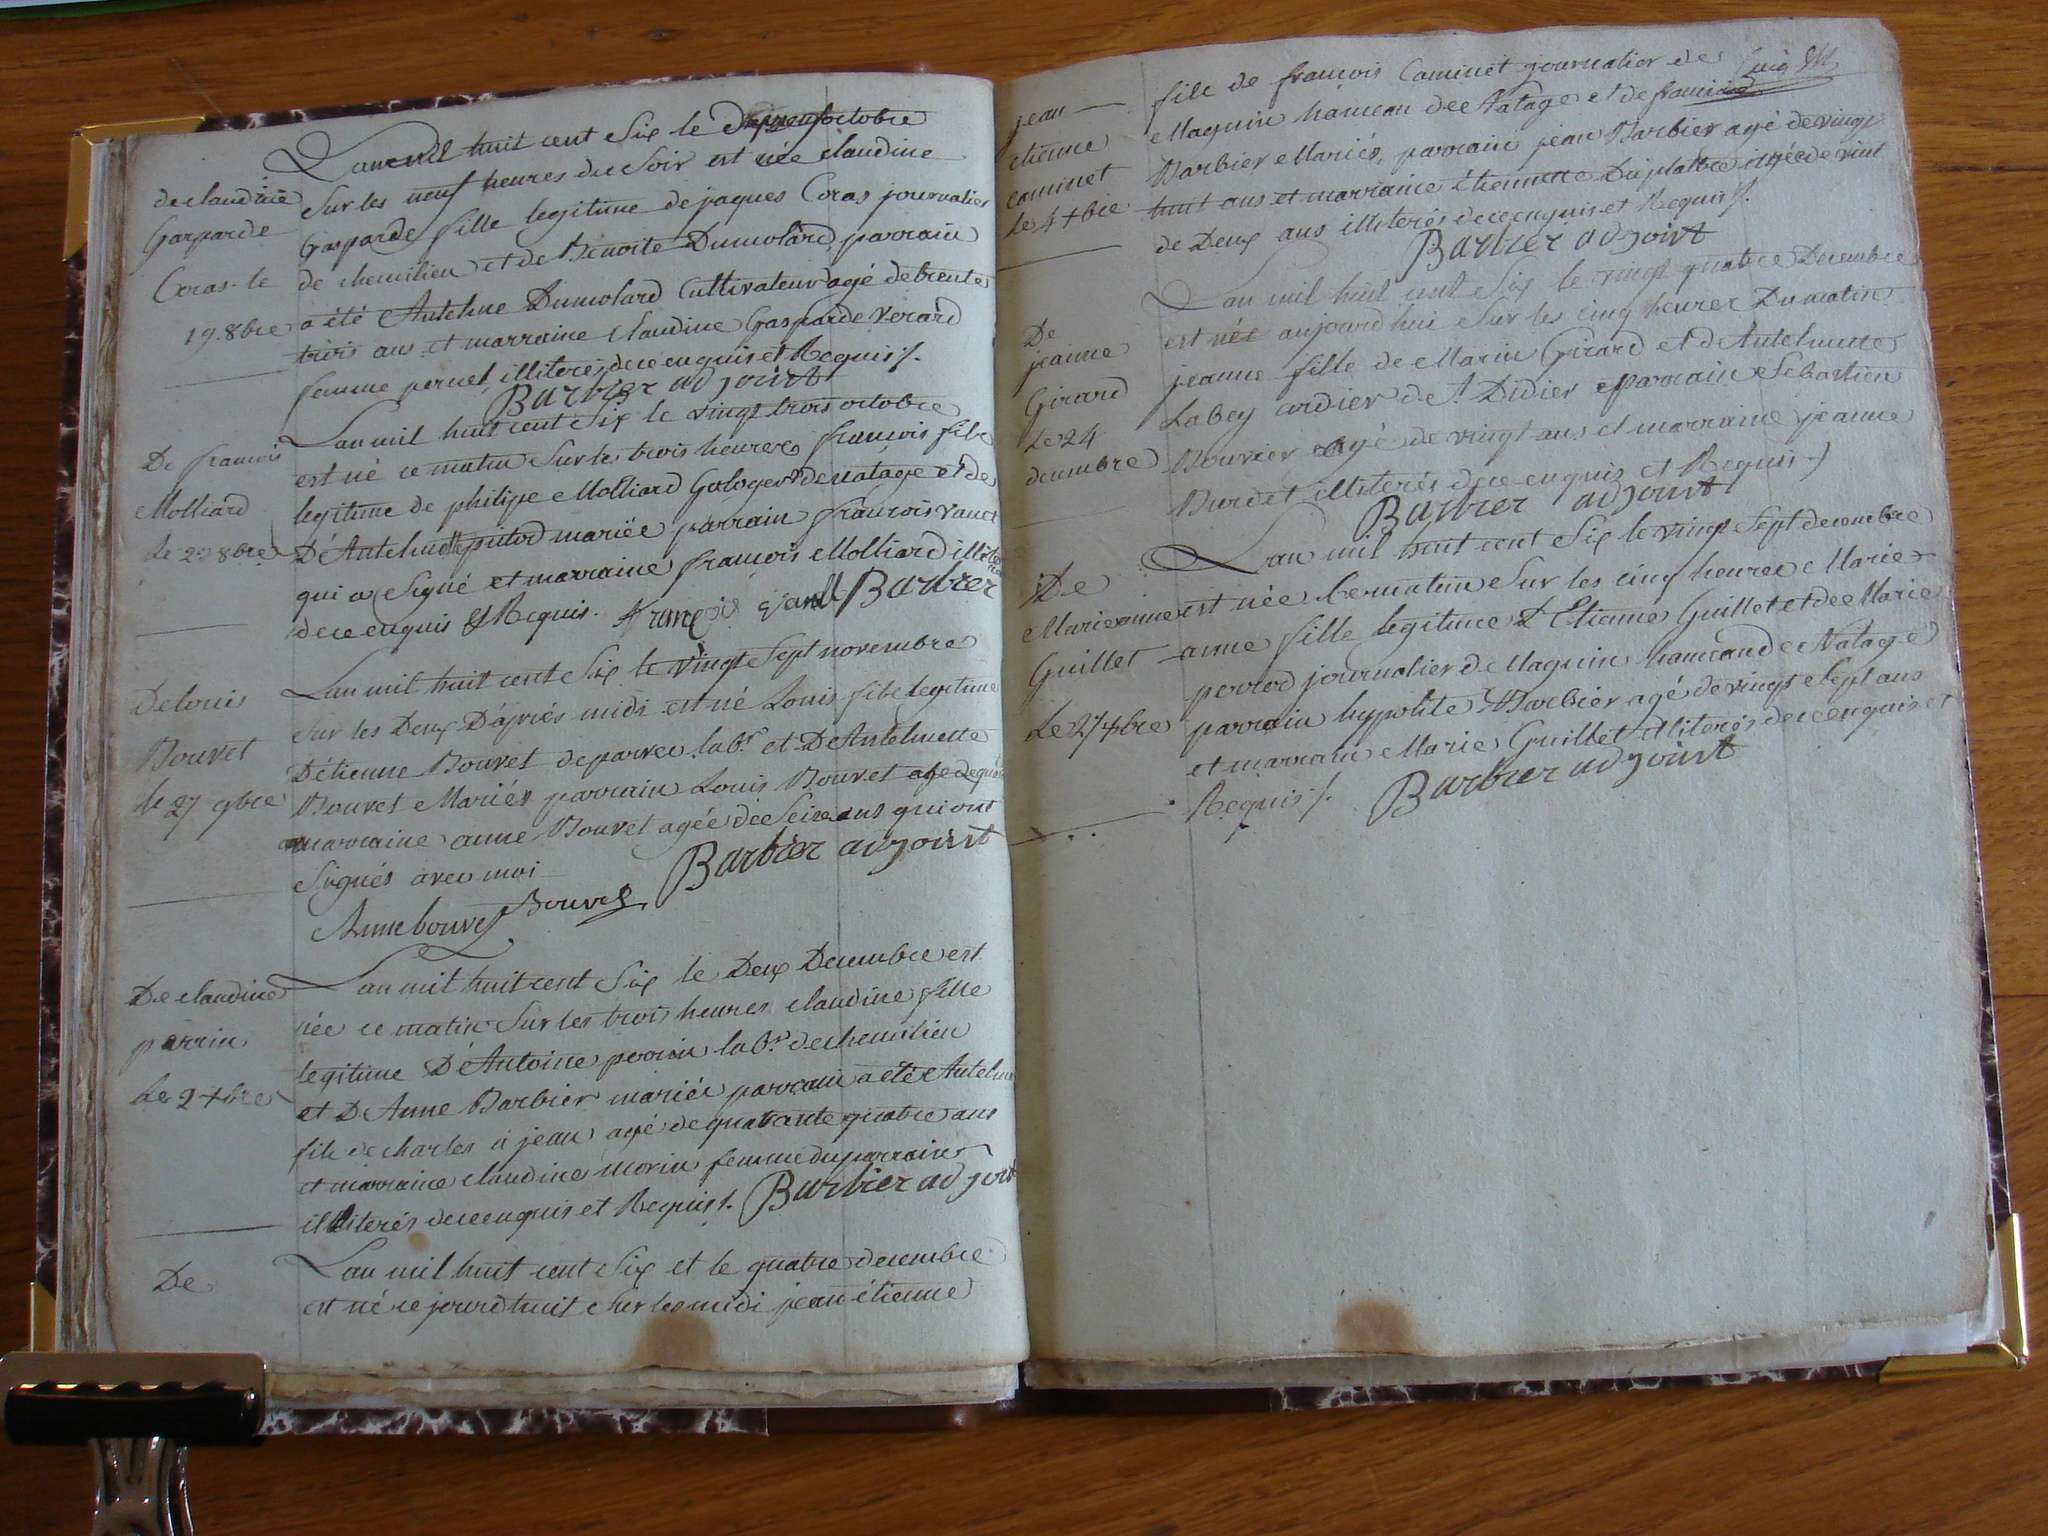 de claudine
Gasparde
Coras le
19 8bre
L'an mil huit cent Six le Dixneuf octobre
Sur les neuf heures du Soir est née claudine
Gasparde fille legitime de jaques Coras journalier
de chemilieu et de Benoite Dumolard parrain
a été Antelme Dumolard Cultivateur agé de trente
trois ans et marraine claudine Gasparde verard
femme pernet illiterés de ce enquis et Requis ./.
Barbier adjoint
De francois
Molliard
Le 23 8bre
L'an mil huit cent Six le vingt trois octobre
est né ce matin Sur les trois heures francois fils
legitime de philipe Molliard de natage et de
D'Antelmette putod mariée parrain francois
qui a Signé et marraine francois Molliard
de ce enquis & Requis. françois Barbier
De louis
Bouvet
le 27 9bre
L'an mil huit cent Six le vingt Sept novembre
sur les Deux D'apriés midi est né Louis fils legitime
D'étienne Bouvet de parves lab.r et D'Antelmette
Bouvet Mariés parrain Louis Bouvet agé de
marraine anne Bouvet agée de Seize ans qui ont
Signés avec moi
Barbier adjoint
Anne bouvet Bouvet
De claudine
perrin
Le 2 Xbre
L'an mil huit cent Six le Deux Decembre est
née ce matin Sur les trois heures claudine fille
legitime D'Antoine perrin lab.r de chemilieu
et D'Anne Barbier mariée parrain a été Antelme
fils de charles à jean agé de quarante quatre ans
et marraine claudine morin femme du parrain
illiterés de ce enquis et Requis ./. Barbier adjoint
De
L'an mil huit cent Six et le quatre decembre
est né ce jourd'huit Sur les midi jean étienne
jean
étienne
caminet
Le 4 Xbre
fils de françois Caminet journalier de
Magnin hameau de Natage et de
Barbier Mariés, parrain jean Barbier agé de vingt
huit ans et marraine étiennette Duplatre agée de vint
de Deux ans illiterés de ce enquis et Requis ./.
Barbier adjoint
De
jeanne
Girard
Le 24
decembre
L'an mil huit cent Six le vingt quatre Decembre
est née aujourd'hui Sur les cinq heures Du matin
jeanne fille de Marin Girard et d'Antelmette
Labey cordier de St Didier parrain Sébastien
Bouvier agé de vingt ans et marraine jeanne
Burdet illiterés de ce enquis et Requis ./.
Barbier adjoint
De
Marieanne
Guillet
Le 27 Xbre
L'an mil huit cent Six le vingt Sept decembre
est née ce matin Sur les cinq heures Marie
anne fille legitime d'Etienne Guillet et de Marie
perrod journalier de Magnin hameau de Natage
parrain hypolite Barbier agé de vingt Sept ans
et marrain Marie Guillet illiterés de ce enquis et
Requis ./. Barbier adjoint